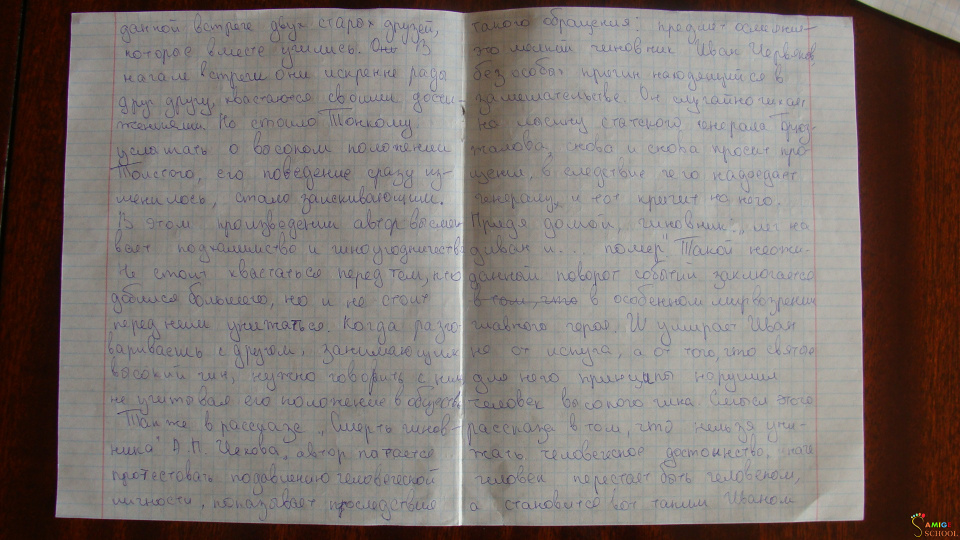 данной встрече двух старых друзей,
которые вместе учились. Они В
начале встречи они искренне рады
друг другу, хвастаются своими дости-
жениями. Но стоило Тонкому
услышать о высоком положении
Толстого, его поведение сразу из-
менилось, стало заискивающим.
В этом произведении автор высмеи-
вает подхалимство и чиноугодничество
Не стоит хвастаться перед тем, кто
добился большего, но и не стоит
перед ним унижаться. Когда разго-
вариваешь с другом, занимающим
высокий чин, нужно говорить с ним
не учитывая его положение в обществе
Также в рассказе „Смерть чинов-
ника" А.П. Чехова, автор пытается
протестовать подавлению человеческой
личности, показывает последствие
такого обращения:
это мелкий чиновник Иван Червяков
без особых причин находящийся в
замешательстве. Он случайно чихает
на лысину статского генерала Бриз-
жалова, снова и снова просит про-
щения, в следствие чего надоедает
генералу, и тот кричит на него.
Придя домой, чиновник „лег на
диван и... помер" Такой неожи-
данный поворот событий заключается
в том, что в особенном мировозрении
главного героя. И умирает Иван
не от испуга, а от того, что святые
для него принципы нарушил
человек высокого чина. Смысл этого
рассказа в том, что нельзя уни-
жать человеческое достоинство, иначе
человек перестает быть человеком,
а становится вот таким Иваном
SAMIGE
SCHOOL